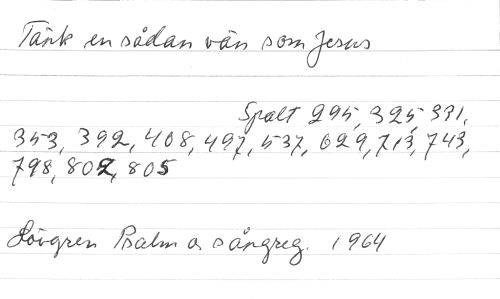 Tänk en sådan vän som Jesus
Spalt 295, 325, 331,
353, 392, 408, 497, 537, 629, 713, 743,
798, 802, 805
Lövgren Psalm o. sångreg. 1964